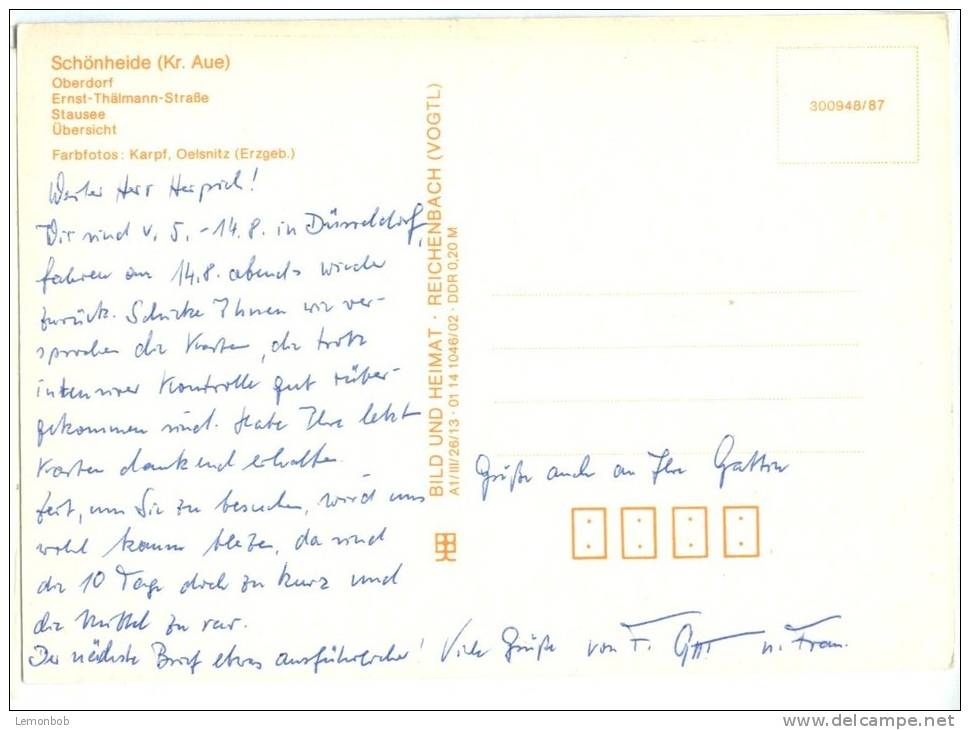 Schönheide (Kr. Aue)
Oberdorf
Ernst-Thälmann-Straße
Stausee
Übersicht
Farbfotos: Karpf, Oelsnitz (Erzgeb.)
300948/87
BILD UND HEIMAT · REICHENBACH (VOGTL)
A1/III/26/13 · 01 14 1046/02 · DDR 0,20 M
Werter Herr
Wir sind v. 5. - 14.8. in Düsseldorf,
fahren am 14.8. abends wieder
zurück. Schicke Ihnen wie ver-
sprochen die Karten, die trotz
intensiver Kontrolle gut rüber-
gekommen sind. Habe Ihre letzt
Karten dankend erhalten.
Zeit, um Sie zu besuchen, wird uns
wohl kaum bleiben, da sind
die 10 Tage doch zu kurz und
die Mittel zu rar.
Der nächste Brief etwas ausführlicher! Viele Grüße von F. u. Frau.
Grüße auch an Ihre Gattin
Lemonbob
www.delcampe.net